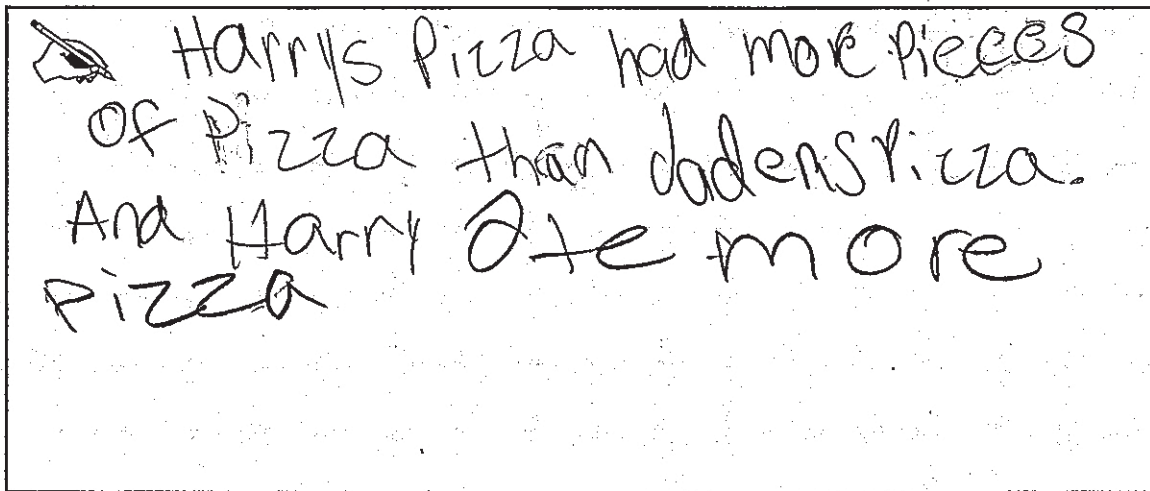 Harrys Pizza had more Pieces
Of Pizza than Jadens Pizza.
And Harry Ate more
pizza